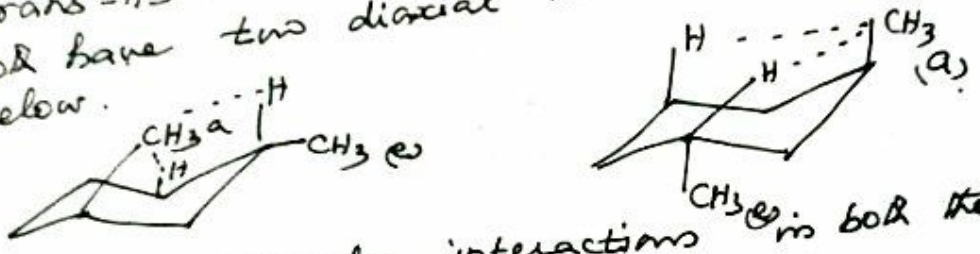 both have two diaxial
elow.
H
CH3 a
H
CH3 (e)
H
H
CH3
(a)
CH3 (e)
interactions in both the